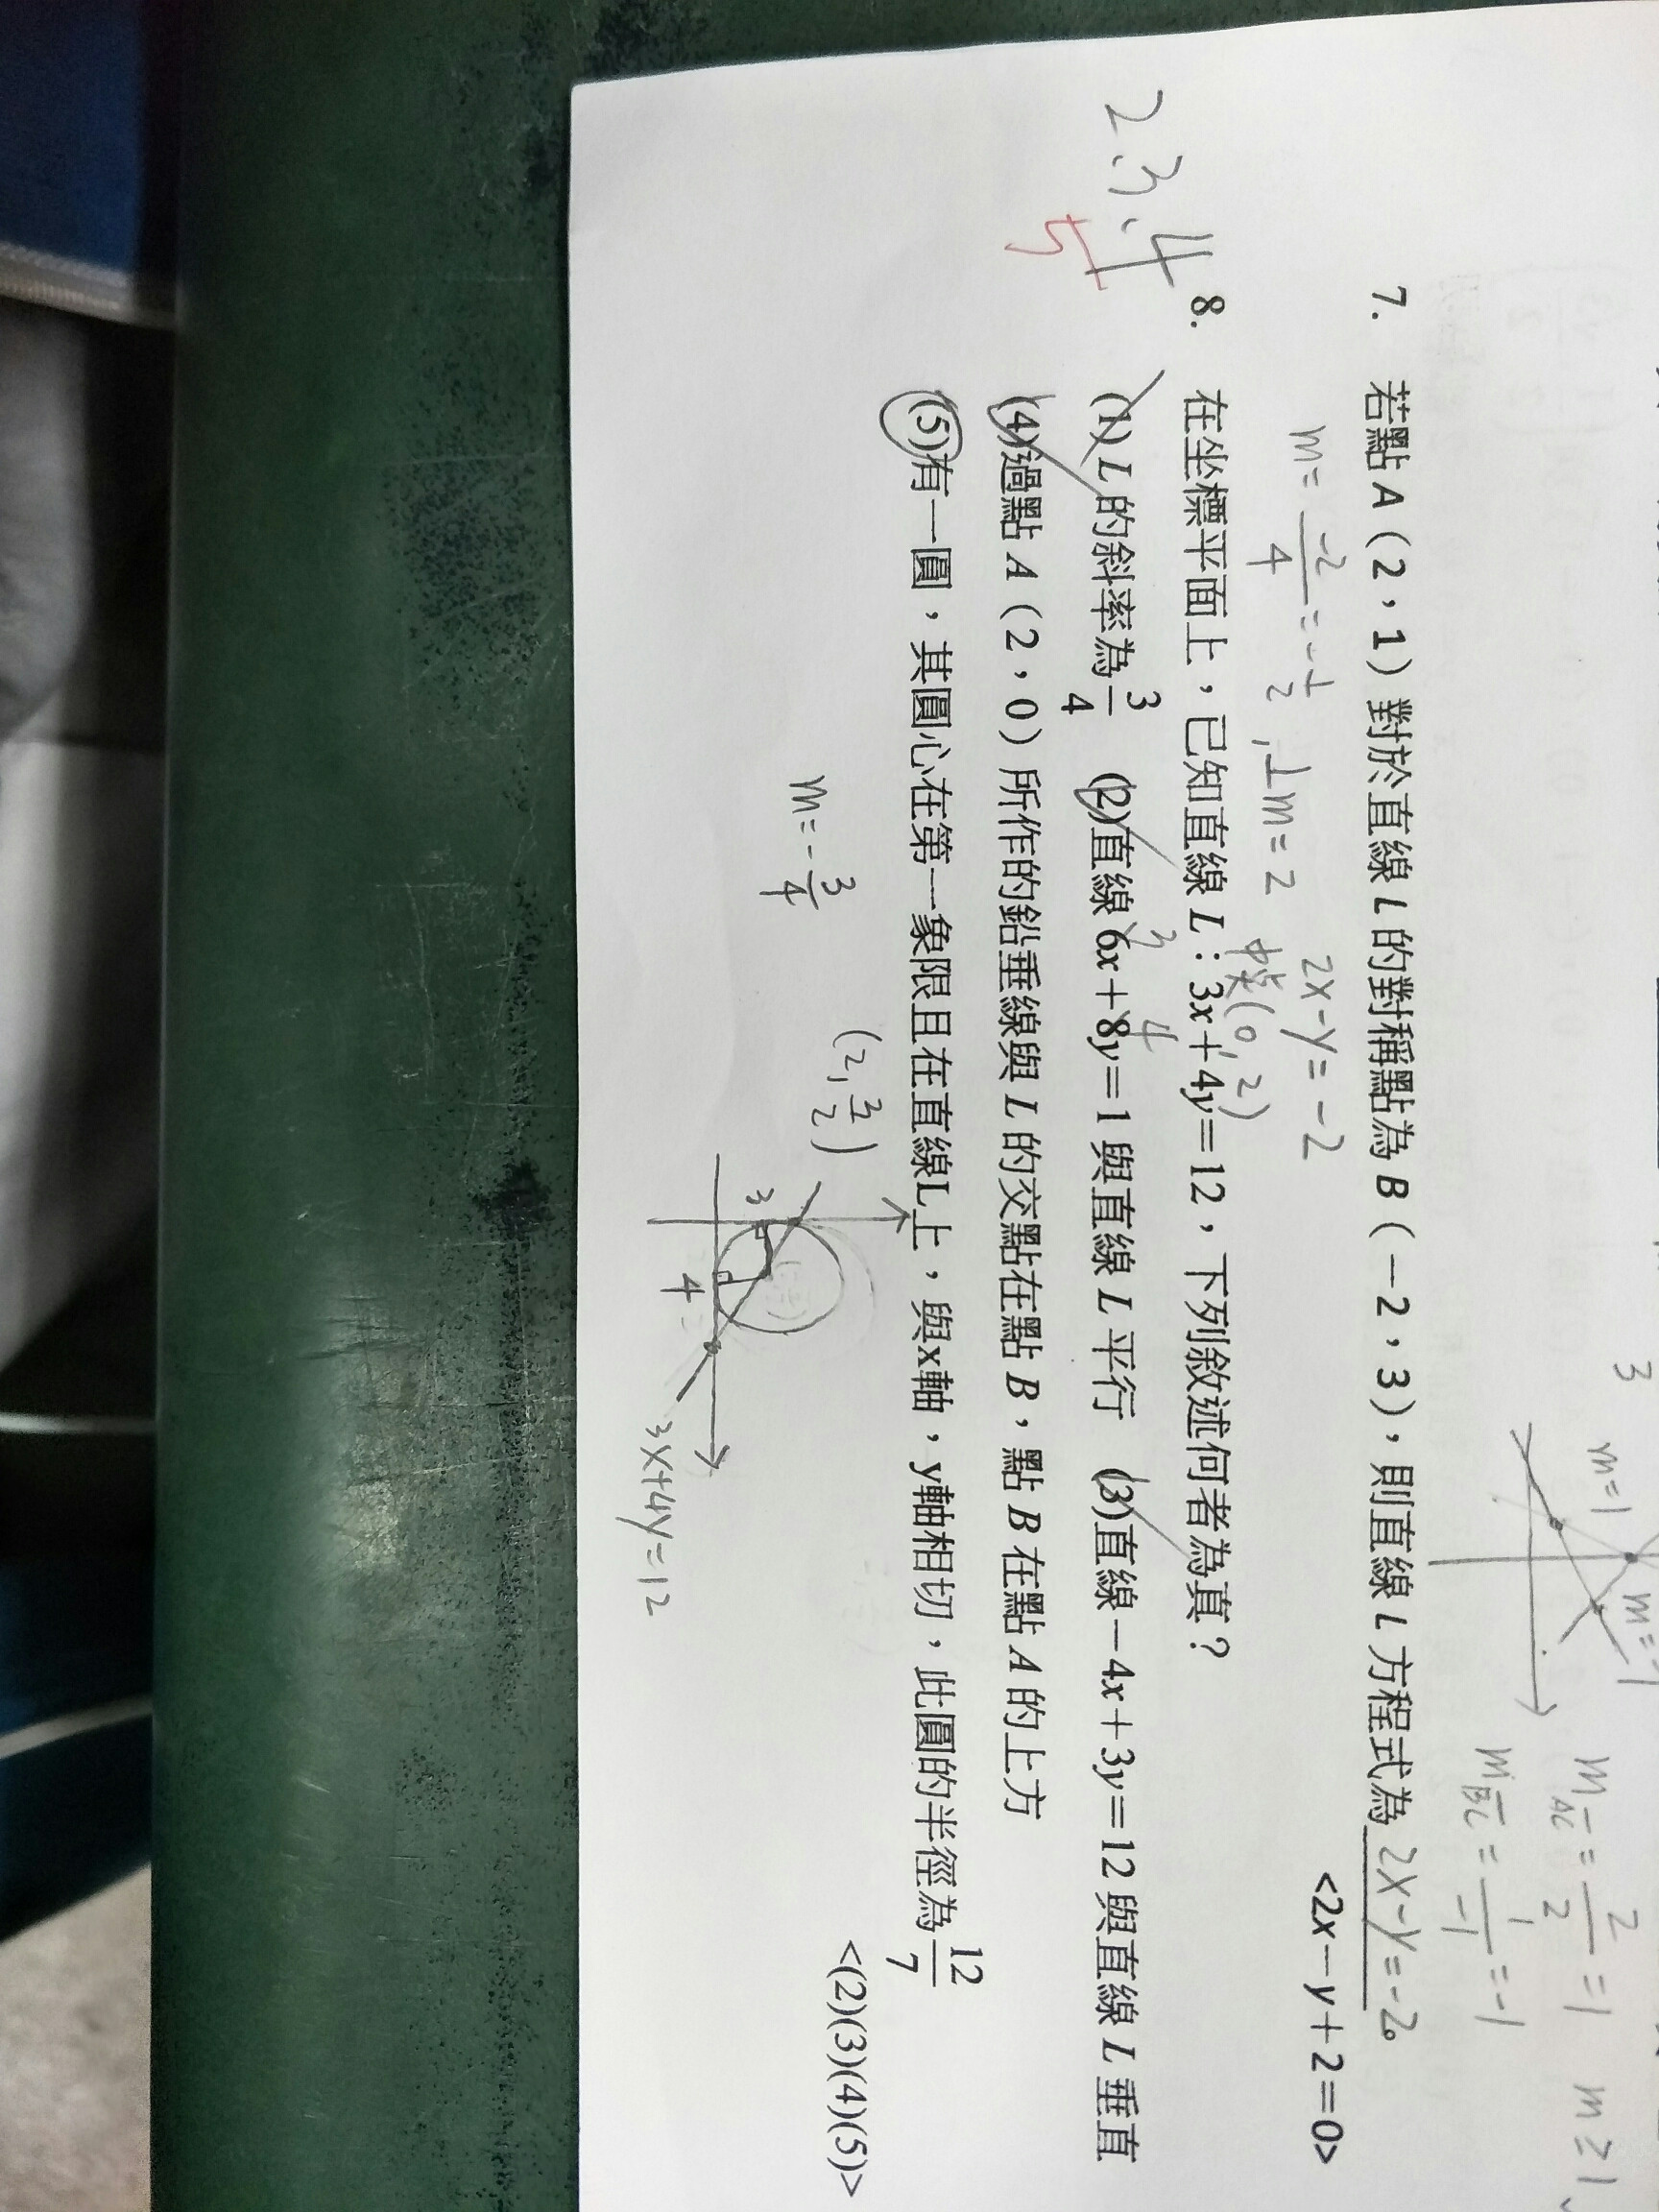 3
m=1
m=-1
m_AC = 2/2 = 1
m≥1
m_BC = 1/-1 = -1
7. 若點 A（2，1）對於直線 L 的對稱點為 B（－2，3），則直線 L 方程式為 2x-y=-2。
m= -2/4 = -1/2, ⊥m=2
2x-y=-2
中點(0,2)
<2x－y＋2＝0>
2.3.4
5
8. 在坐標平面上，已知直線 L：3x＋4y＝12，下列敘述何者為真？
3 4
(1) L 的斜率為 3/4 (2)直線 6x＋8y＝1 與直線 L 平行 (3)直線－4x＋3y＝12 與直線 L 垂直
(4)過點 A（2，0）所作的鉛垂線與 L 的交點在點 B，點 B 在點 A 的上方
(5)有一圓，其圓心在第一象限且在直線L上，與x軸，y軸相切，此圓的半徑為 12/7
<(2)(3)(4)(5)>
m=-3/4
(2, 3/2)
3
4
3x+4y=12